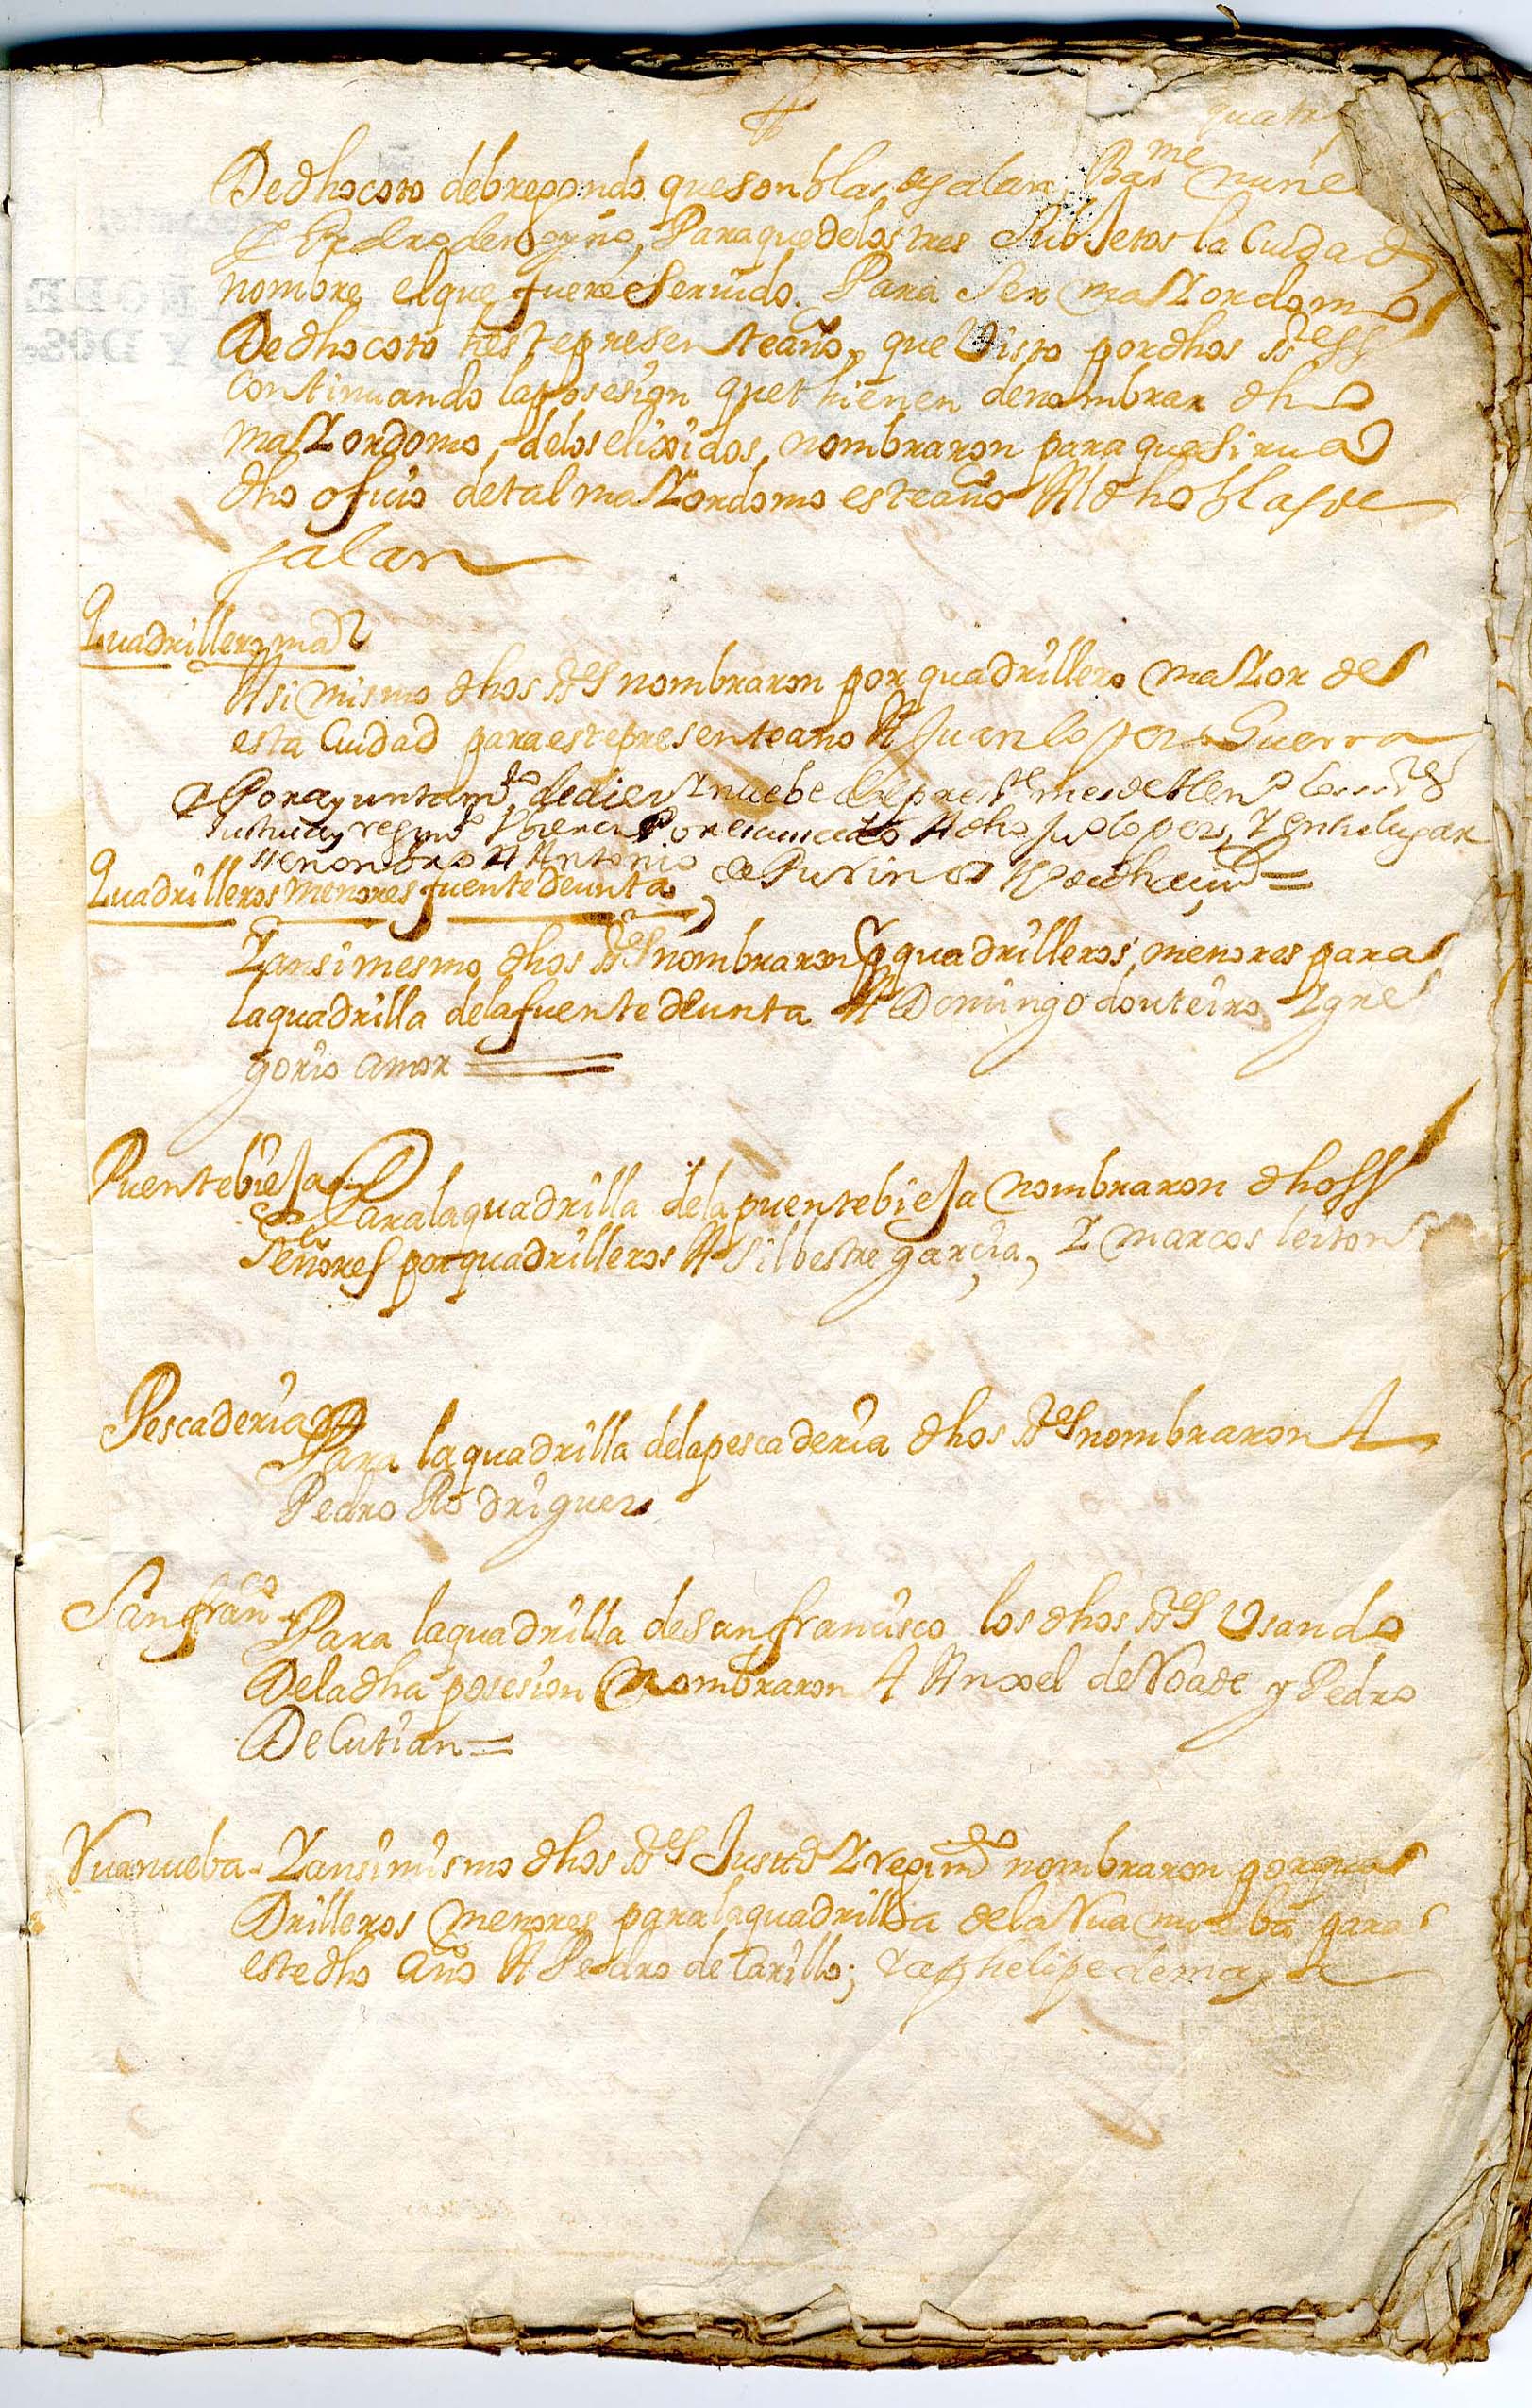 De dho coto de bregondo que son blas de galan, Barme nuñe
Y Pedro de Para que de los tres Subjetos la Ciudad
nombre el que fuere Seruido. Para Ser maYordomo
De dho coto neste presente año, que Visto por dhos ssres
Continuando la posesion que thienen de nombrar dho
maYordomo, de los elixidos, nombraron para que Sirua
dho oficio de tal maYordomo este año Al dho blas de
galan
Quadrillero mar
Asi mismo dhos ssres nombraron por quadrillero maYor de
esta Ciudad para este presente ano A Juan lopez Guerra
Por ayuntamto de diez Y nuebe del preste mes de Hen° los ssres
Justicia y regimto por escusado A dho Ju° lopez, Y en su lugar
se nonbro A Antonio de de dha ciud =
Quadrilleros menores fuente de unta
Yansimesmo dhos ssres nombraron por quadrilleros menores para
la quadrilla de la fuente de unta A Domingo douteiro Y gre
gorio amor
Puente bieJa
Para la quadrilla de la puente bieJa nombraron dhos
Señores por quadrilleros A Silbestre garçia, Y marcos leiton
Pescaderia
Para la quadrilla de la pescaderia dhos ssres nombraron A
Pedro Rodriguez
San franco
Para la quadrilla de San francisco los dhos ssres Vsando
De la dha posesion Nombraron A Anxel de Noade y Pedro
De Cutian =
Rua nueba
Yansimismo dhos ssres Justa Y regimdo nombraron por qua
Drilleros menores para la quadrilla de la Rua nueba para
este dho año A Pedro de Carillo; Y a phelipe de